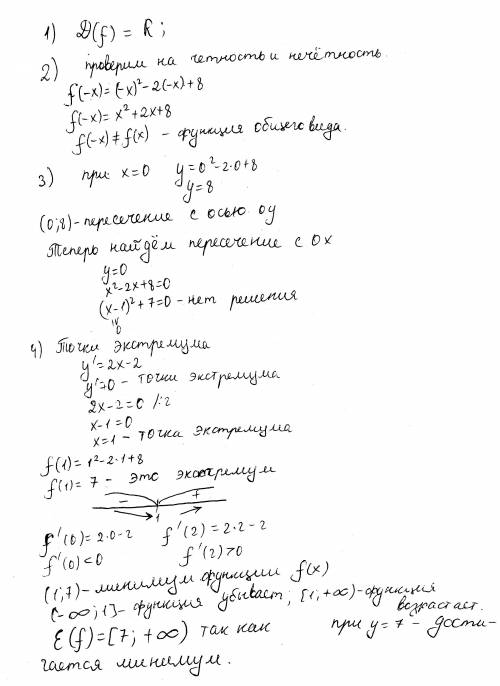 1) D(f) = R;
2) проверим на четность и нечётность.
f(-x)=(-x)²-2(-x)+8
f(-x)=x²+2x+8
f(-x)≠f(x) - функция общего вида.
3) при x=0 y=0²-2·0+8
y=8
(0;8)-пересечение с осью oy
Теперь найдём пересечение с Ox
y=0
x²-2x+8=0
(x-1)²+7=0 - нет решения
0
4) Точки экстремума
y'=2x-2
y'=0 - точки экстремума
2x-2=0 /:2
x-1=0
x=1 - точка экстремума
f(1)=1²-2·1+8
f(1)=7 - это экстремум
- +
1
f'(0)=2·0-2 f'(2)=2·2-2
f'(0)<0 f'(2)>0
(1;7)-минимум функции f(x)
(-∞;1]-функция убывает; [1;+∞)-функция
возрастает.
E(f)=[7;+∞) так как при y=7 - дости-
гается минимум.